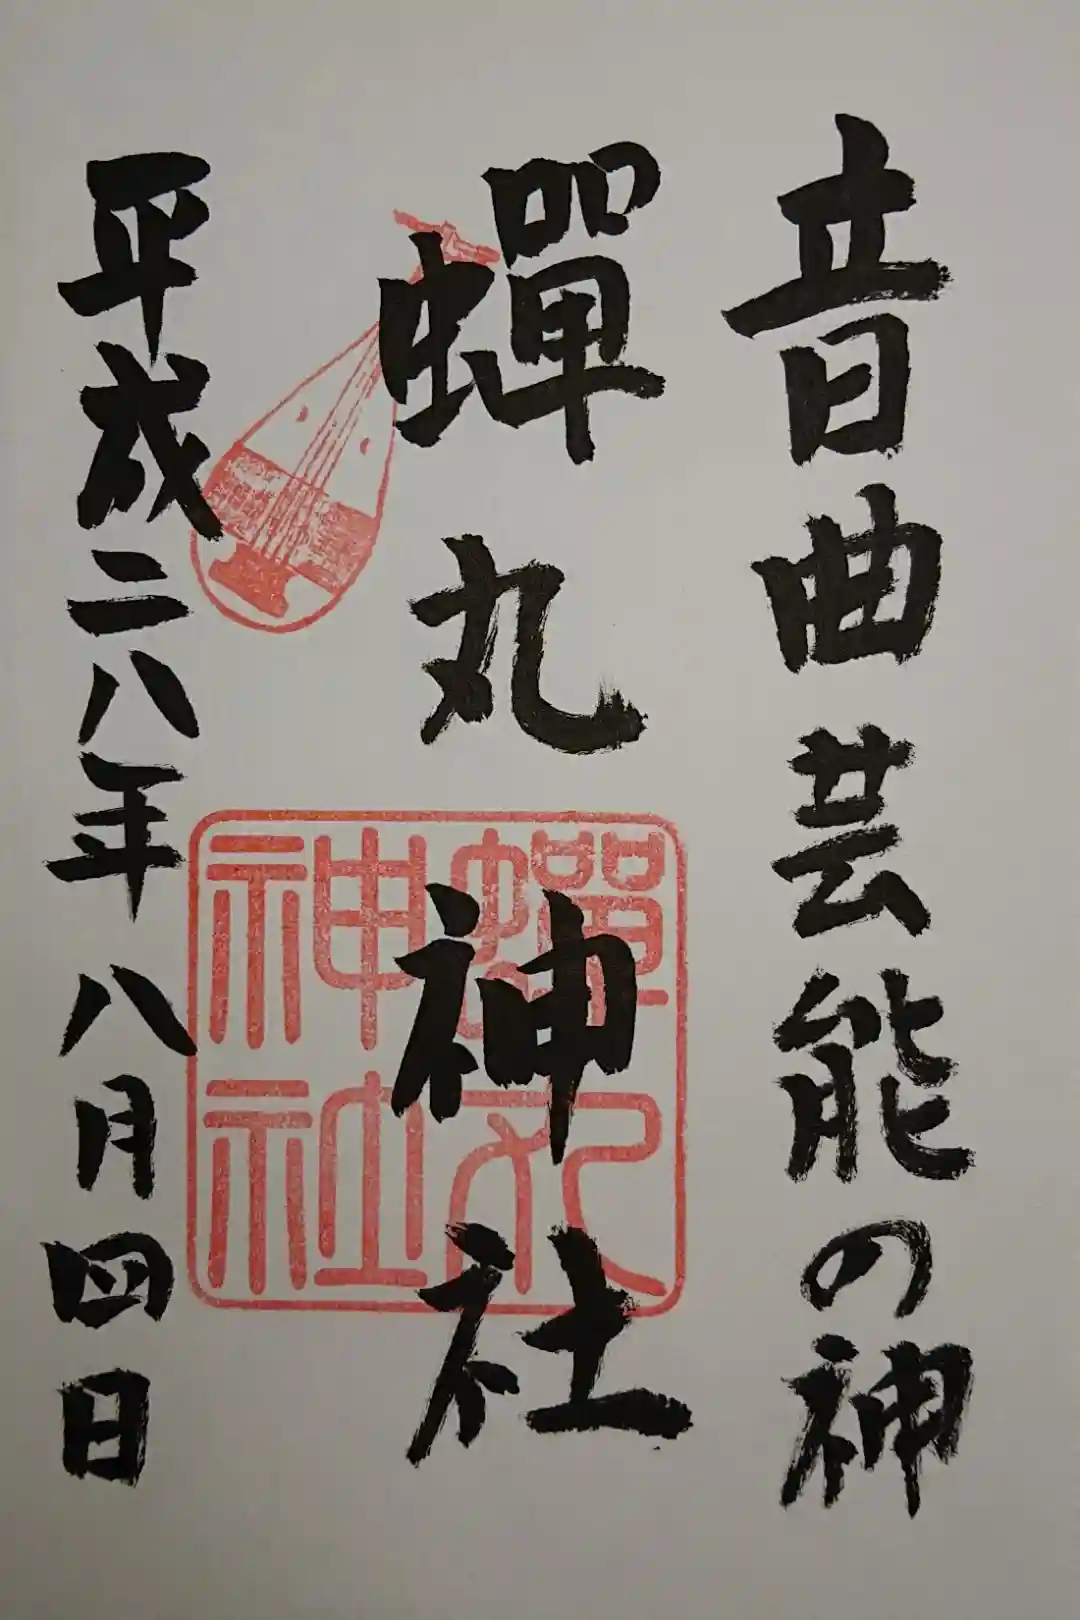 音曲芸能の神
蟬丸神社
平成二八年八月四日
蟬丸
神社